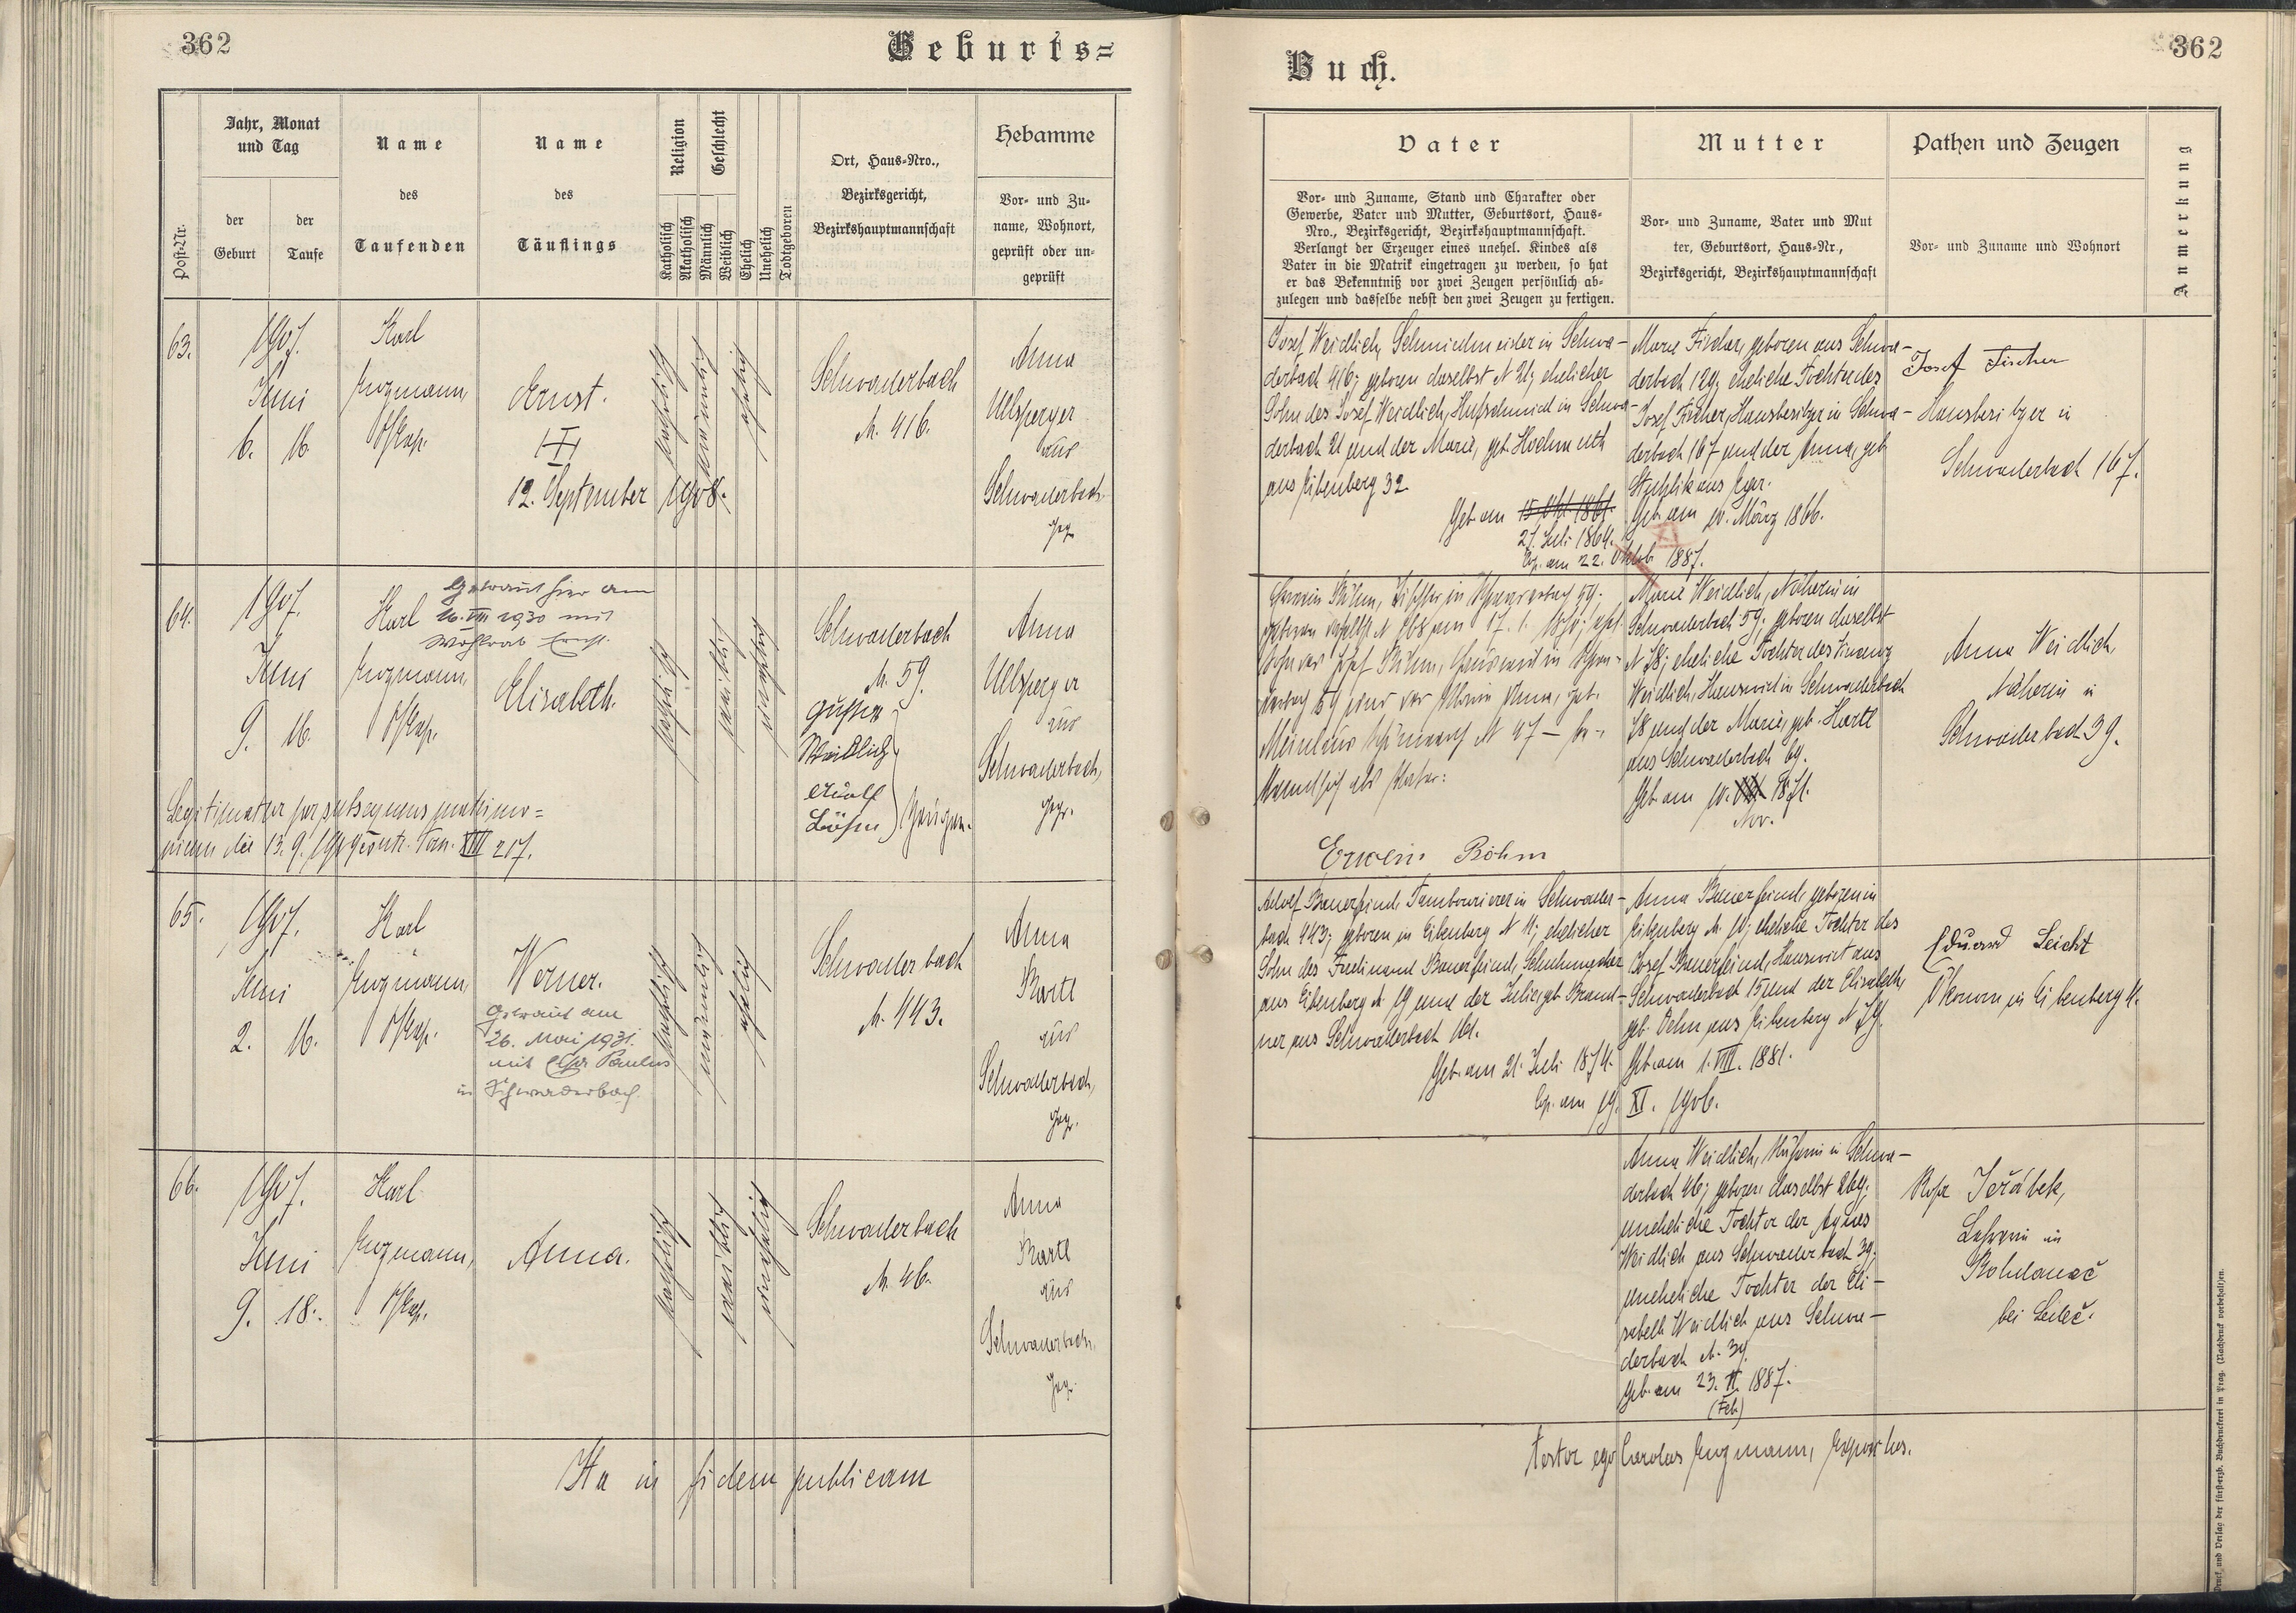 362
Geburts=
Post-Nr.
Jahr, Monat
und Tag
der
Geburt
der
Taufe
Name
des
Taufenden
Name
des
Täuflings
Religion
Katholisch
Akatholisch
Geschlecht
Männlich
Weiblich
Ehelich
Unehelich
Todtgeboren
Ort, Haus-Nro.,
Bezirksgericht,
Bezirkshauptmannschaft
Hebamme
Vor- und Zu-
name, Wohnort,
geprüft oder un-
geprüft
63.
1907.
Juni
6. 16.
Karl
Engmann,
Ernst.
12. September 1908.
katholisch
männlich
ehelich
Schwaderbach
N. 416.
Anna
Ullsperger
aus
Schwaderbach
gepr.
64.
1907.
Juni
9. 16.
Karl
Engmann,
Getraut hier am
mit
Elisabeth.
katholisch
weiblich
unehelich
Schwaderbach
N. 59.
Weidlich
Zeugen.
Anna
Ullsperger
aus
Schwaderbach,
gepr.
Legitimatur per subsequens matrimo=
nium die 13. 9. Tom. XIII 217.
65.
1907.
Juni
2. 16.
Karl
Engmann,
Werner.
Getraut am
26. Mai 1931.
mit Paulus
in Schwaderbach.
katholisch
männlich
ehelich
Schwaderbach
N. 443.
Anna
Bartl
aus
Schwaderbach,
gepr.
66.
1907.
Juni
9. 18.
Karl
Engmann,
Anna.
katholisch
weiblich
unehelich
Schwaderbach
N. 46.
Anna
Bartl
aus
Schwaderbach,
gepr.
Ita in fidem publicam
Buch.
362
Vater
Vor- und Zuname, Stand und Charakter oder
Gewerbe, Vater und Mutter, Geburtsort, Haus-
Nro., Bezirksgericht, Bezirkshauptmannschaft.
Verlangt der Erzeuger eines unehel. Kindes als
Vater in die Matrik eingetragen zu werden, so hat
er das Bekenntniß vor zwei Zeugen persönlich ab-
zulegen und dasselbe nebst den zwei Zeugen zu fertigen.
Mutter
Vor- und Zuname, Vater und Mut
ter, Geburtsort, Haus-Nr.,
Bezirksgericht, Bezirkshauptmannschaft
Pathen und Zeugen
Vor- und Zuname und Wohnort
Anmerkung
Josef Weidlich, Schmiedmeister in Schwa-
derbach 416; geboren daselbst N 21; ehelicher
Sohn des Josef Weidlich, Hufschmied in Schwa-
derbach 21 und der Marie, geb. Hochmuth
aus Eibenberg 32.
Geb. am 15. Okt. 1861.
27. Juli 1864.
Cop. am 22. Oktob. 1887.
Marie Fischer, geboren aus Schwa-
derbach 129; eheliche Tochter des
Josef Fischer, Hausbesitzer in Schwa-
derbach 167 und der Anna, geb.
aus Eger.
Geb. am 10. März 1866.
Josef Fischer
Hausbesitzer in
Schwaderbach 167.
Erwin Böhm, Tischler in Schwaderbach 59.
Erwin Böhm
Marie Weidlich, Näherin in
Schwaderbach 59; geboren daselbst
N 78; eheliche Tochter des Vinzenz
Weidlich, Hauswirt in Schwaderbach
78 und der Marie, geb. Hartl
aus Schwaderbach 69.
Geb. am 10. VIII. 1871.
Nov.
Anna Weidlich,
Näherin in
Schwaderbach 39.
Adolf Bauerfeind, Tambourierer in Schwader-
bach 443; geboren in Eibenberg N 11; ehelicher
Sohn des Ferdinand Bauerfeind, Schuhmacher
aus Eibenberg N. 19 und der Julie, geb. Brand-
ner aus Schwaderbach 161.
Geb. am 21. Juli 1874.
Cop. am 19. XI. 1906.
Anna Bauerfeind, geboren in
Eibenberg N. 11; eheliche Tochter des
Josef Bauerfeind, Hauswirt aus
Schwaderbach 15 und der Elisabeth,
geb. aus Eibenberg N 79.
Geb. am 1. VIII. 1881.
Eduard Leicht
Ökonom in Eibenberg 11.
Anna Weidlich, Näherin in Schwa-
derbach 46; geboren daselbst 269;
uneheliche Tochter der Agnes
Weidlich aus Schwaderbach 39;
uneheliche Tochter der Eli-
sabeth Weidlich aus Schwa-
derbach N. 39.
Geb. am 23. II. 1887.
(Feb.)
Rosa Jeřábek,
Lehrerin in
bei
testor ego Carolus Engmann, Expositus.
Druck und Verlag der fürsterzb. Buchdruckerei in Prag. (Nachdruck vorbehalten.)